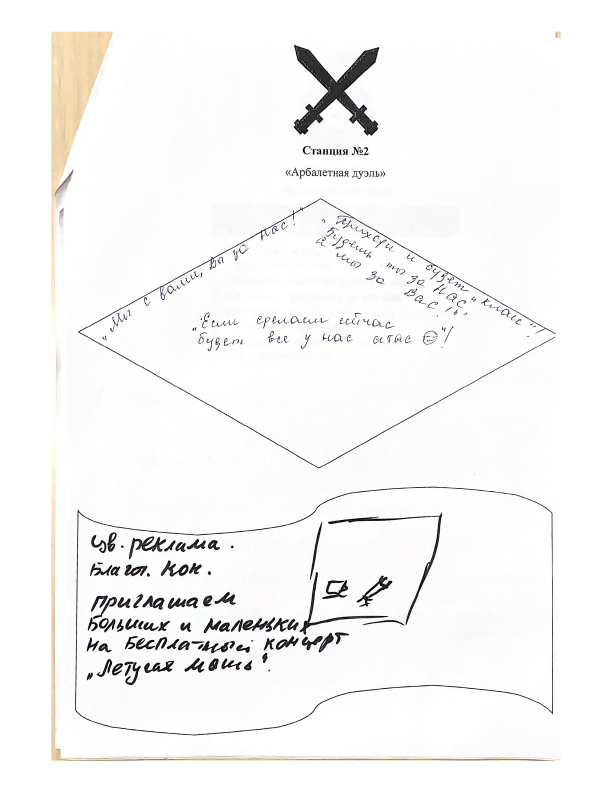 Станция №2
«Арбалетная дуэль»
„Мы с вами, вы за нас!"
„Приходи и будет „класс"!
Будешь ты за нас,
а мы за Вас!"
„Если сделаем сейчас
будет все у нас атас"!
цв. реклама.
Благот. кон.
приглашаем
Больших и маленьких
на бесплатный концерт
„Летучая мышь".